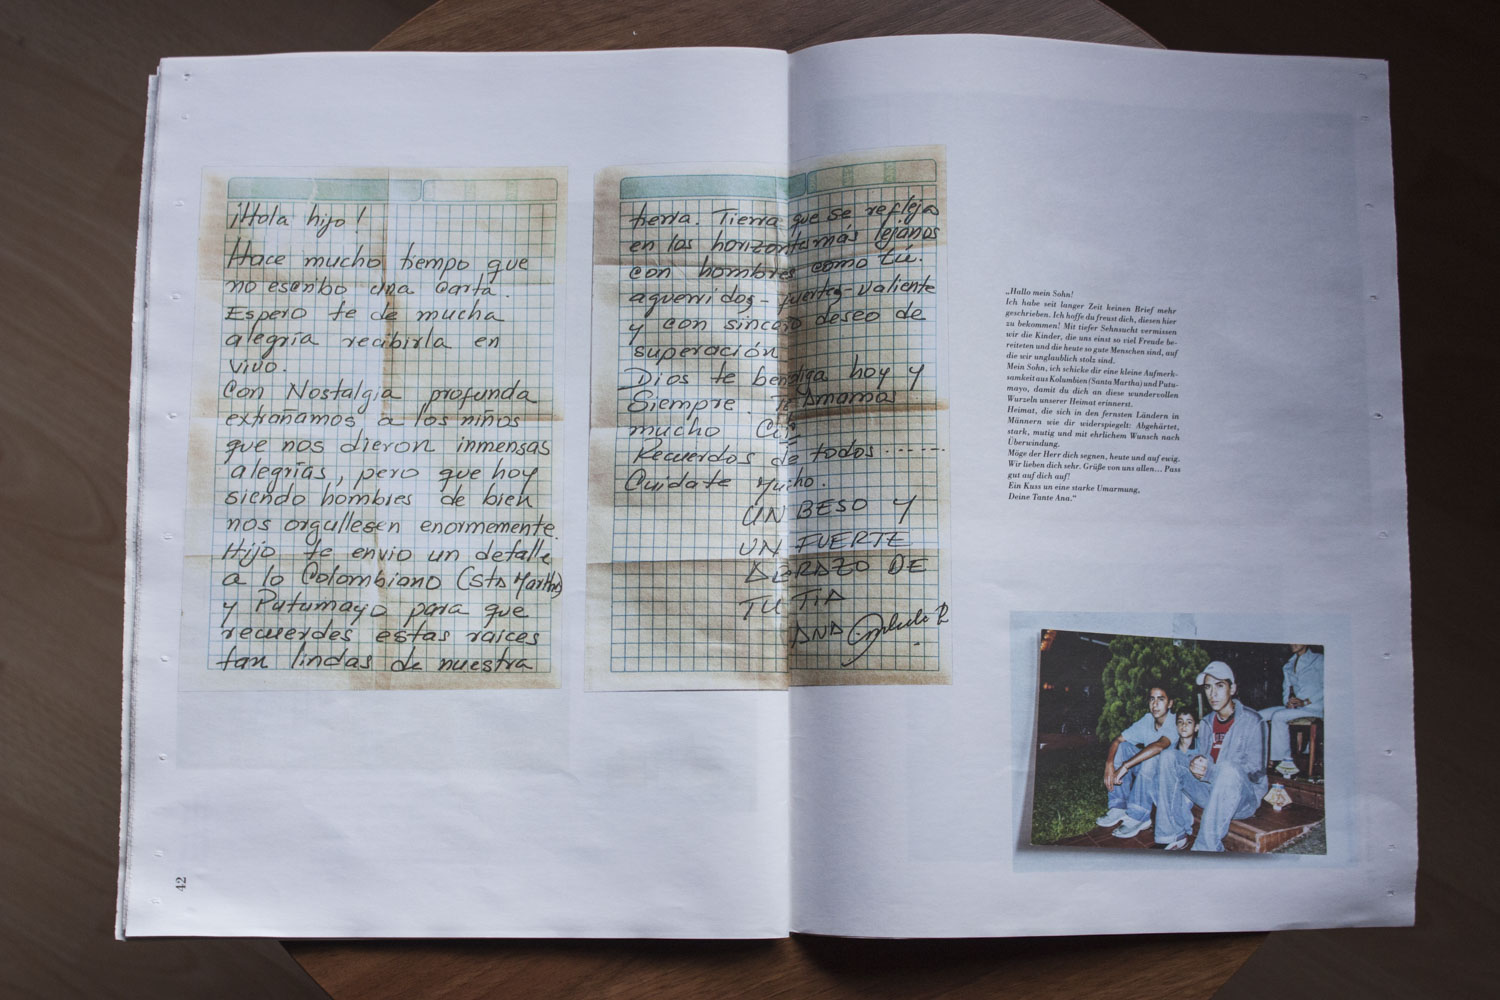 ¡Hola hijo!
Hace mucho tiempo que
no escribo una carta.
Espero te de mucha
alegría recibirla en
vivo.
Con Nostalgia profunda
extrañamos a los niños
que nos dieron inmensas
alegrías, pero que hoy
siendo hombres de bien
nos orgullesen enormemente.
Hijo te envio un detalle
a lo Colombiano (Sta Martha)
y Putumayo para que
recuerdes estas raices
tan lindas de nuestra
tierra. Tierra que se refleja
en los más lejanos
con hombres como tú.
aguerridos-fuertes-valiente
y con sincero deseo de
superación
Dios te bendiga hoy y
Siempre. Te Amamos
mucho
Recuerdos de todos.......
Cuidate Mucho.
UN BESO Y
UN FUERTE
ABRAZO DE
TU TIA
ANA
„Hallo mein Sohn!
Ich habe seit langer Zeit keinen Brief mehr
geschrieben. Ich hoffe du freust dich, diesen hier
zu bekommen! Mit tiefer Sehnsucht vermissen
wir die Kinder, die uns einst so viel Freude be-
reiteten und die heute so gute Menschen sind, auf
die wir unglaublich stolz sind.
Mein Sohn, ich schicke dir eine kleine Aufmerk-
samkeit aus Kolumbien (Santa Martha) und Putu-
mayo, damit du dich an diese wundervollen
Wurzeln unserer Heimat erinnerst.
Heimat, die sich in den fernsten Ländern in
Männern wie dir widerspiegelt: Abgehärtet,
stark, mutig und mit ehrlichem Wunsch nach
Überwindung.
Möge der Herr dich segnen, heute und auf ewig.
Wir lieben dich sehr. Grüße von uns allen... Pass
gut auf dich auf!
Ein Kuss un eine starke Umarmung,
Deine Tante Ana.“
42